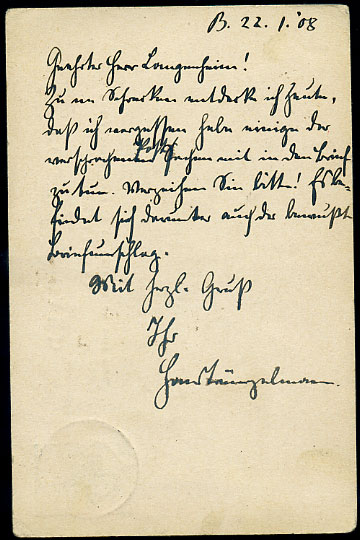 B. 22. 1. 08
Geehrter Herr Langenheim!
Zu m. Schrecken entdeck ich heute,
daß ich vergessen habe einige der
versprochenen Sachen mit in den Brief
zu tun. Verzeihen Sie bitte! Es be-
findet sich darunter auch der bewußte
Briefumschlag.
Mit herzl. Gruß
Ihr
Hans